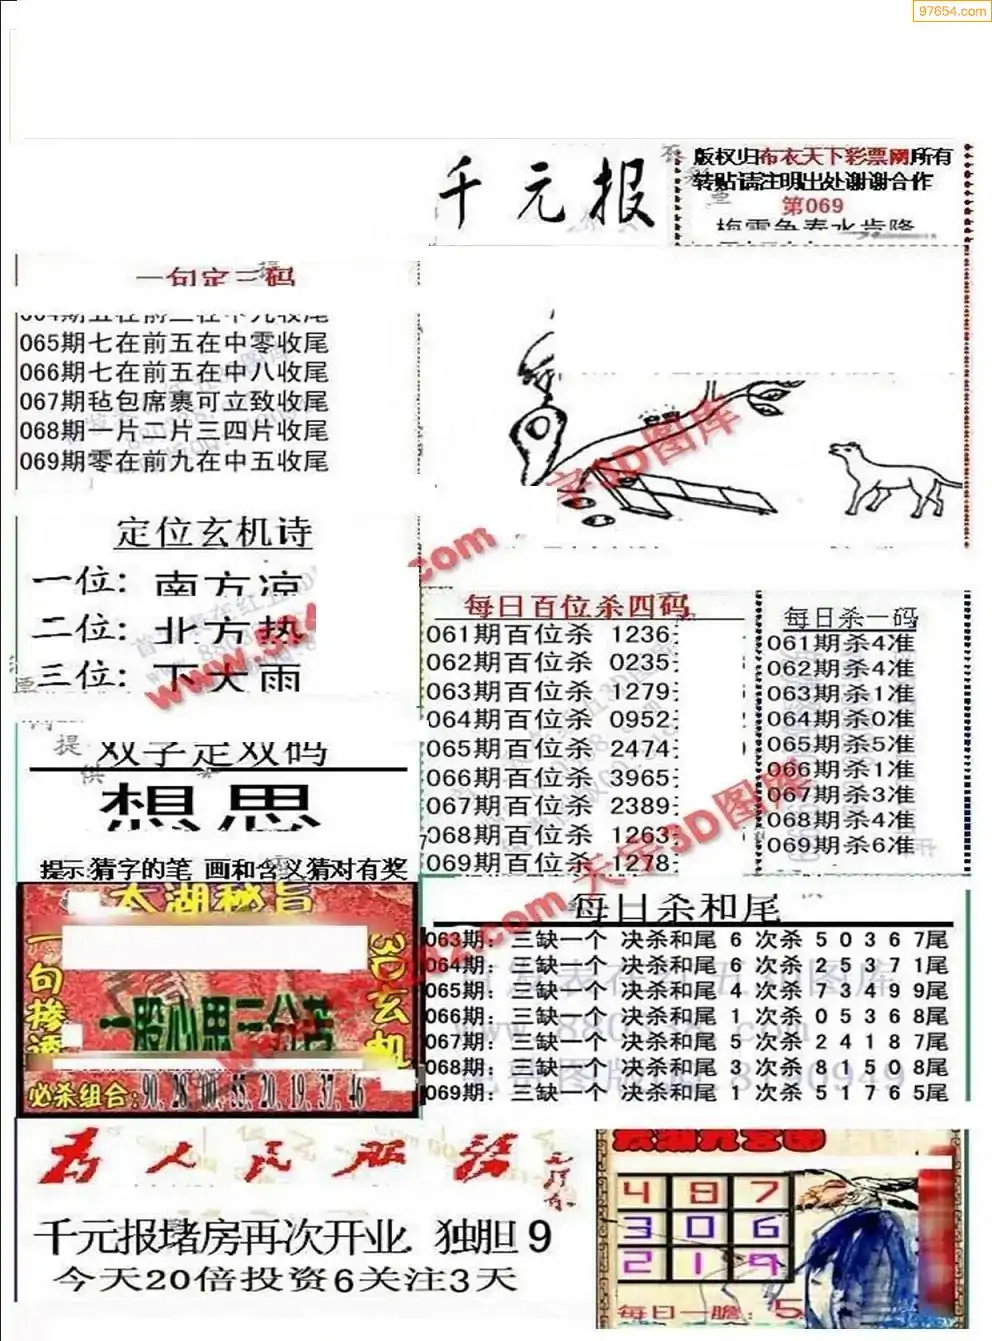 97654.com
千元报
版权归布衣天下彩票网所有
转贴请注明出处谢谢合作
第069
梅雪争春水肯降
一句定三码
065期七在前五在中零收尾
066期七在前五在中八收尾
067期毡包席裹可立致收尾
068期一片二片三四片收尾
069期零在前九在中五收尾
定位玄机诗
一位: 南方凉
二位: 北方热
三位: 下大雨
每日百位杀四码
061期百位杀 1236
062期百位杀 0235
063期百位杀 1279
064期百位杀 0952
065期百位杀 2474
066期百位杀 3965
067期百位杀 2389
068期百位杀 1263
069期百位杀 1278
每日杀一码
061期杀4准
062期杀4准
063期杀1准
064期杀0准
065期杀5准
066期杀1准
067期杀3准
068期杀4准
069期杀6准
双字定双码
想思
提示:猜字的笔 画和含义猜对有奖
太湖秘旨
一句掺透
3D玄机
一股心思三分苦
必杀组合:90.28.00.55.20.19.37.46
每日杀和尾
063期: 三缺一个 决杀和尾 6 次杀 5 0 3 6 7尾
064期: 三缺一个 决杀和尾 6 次杀 2 5 3 7 1尾
065期: 三缺一个 决杀和尾 4 次杀 7 3 4 9 9尾
066期: 三缺一个 决杀和尾 1 次杀 0 5 3 6 8尾
067期: 三缺一个 决杀和尾 5 次杀 2 4 1 8 7尾
068期: 三缺一个 决杀和尾 3 次杀 8 1 5 0 8尾
069期: 三缺一个 决杀和尾 1 次杀 5 1 7 6 5尾
为人民服务
毛泽东
千元报堵房再次开业. 独胆 9
今天20倍投资6关注3天
太湖九宫图
4 8 7
3 0 6
2 1 9
每日一胆: 5